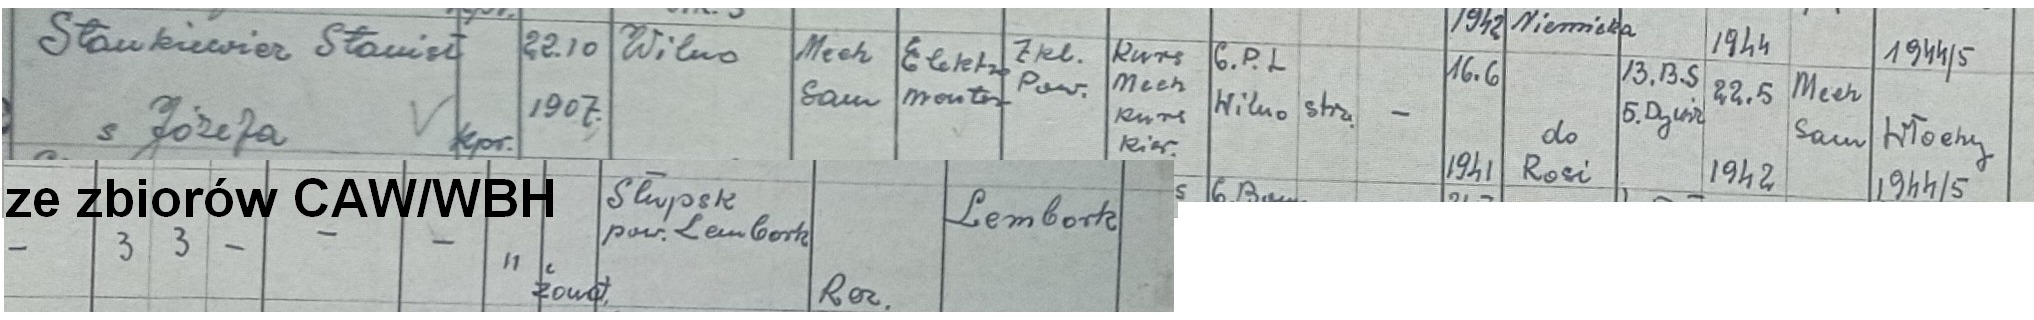 1942 Niemiecka 1944 1944/5
Stankiewicz Stanisł 22.10 Wilno Mech Elektro Zkl. Kurs 6.P.L 16.6 13.B.S 22.5 Mech
Sam monter Pow. Mech Wilno str. - 5.Dywiz Sam Włochy
s Józefa kpr. 1907. Kurs do
Kier. 1941 Rosi 1942 1944/5
ze zbiorów CAW/WBH
Słupsk Lembork
pow. Lembork
- 3 3 - - - "
żonat. Rez.